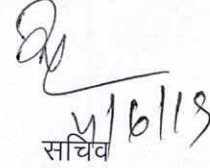 4/6/19
सचिव